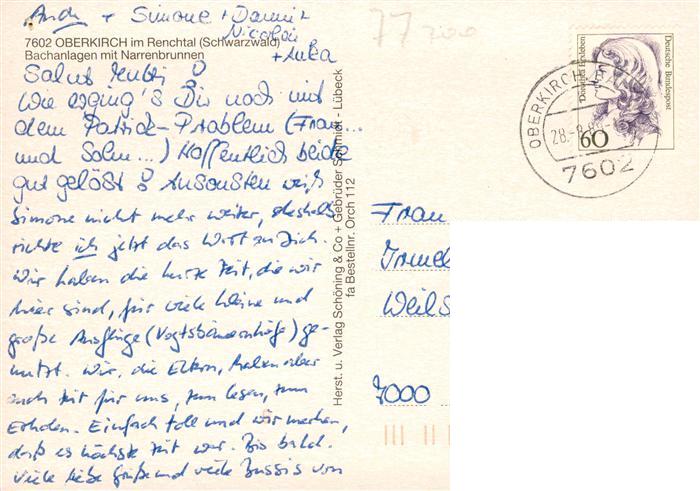 Andi + Simone + Dominik
Nicolai
+ Anka
7602 OBERKIRCH im Renchtal (Schwarzwald)
Bachanlagen mit Narrenbrunnen
Salut
Wie erging's Dir noch mit
dem Patrick-Problem (Frau...
und Sohn...) Hoffentlich beide
gut gelöst! Ansonsten weiß
Simone nicht mehr weiter, deshalb
richte ich jetzt das Wort an Dich.
Wir haben die kurze Zeit, die wir
hier sind, für viele kleine und
große Ausflüge (Vogtsbauernhöfe) ge-
nutzt. Wir, die Eltern, haben aber
auch Zeit für uns, zum Lesen, zum
Erholen. Einfach toll und wir merken,
daß es höchste Zeit war. Bis bald.
Viele liebe Grüße und viele Bussis von
Herst. u. Verlag Schöning & Co + Gebrüder Schmidt - Lübeck
fa Bestellnr. Orch 112
77 200
Dorothea Erxleben
Deutsche Bundespost
60
OBERKIRCH
7602
Frau
Weil
7000